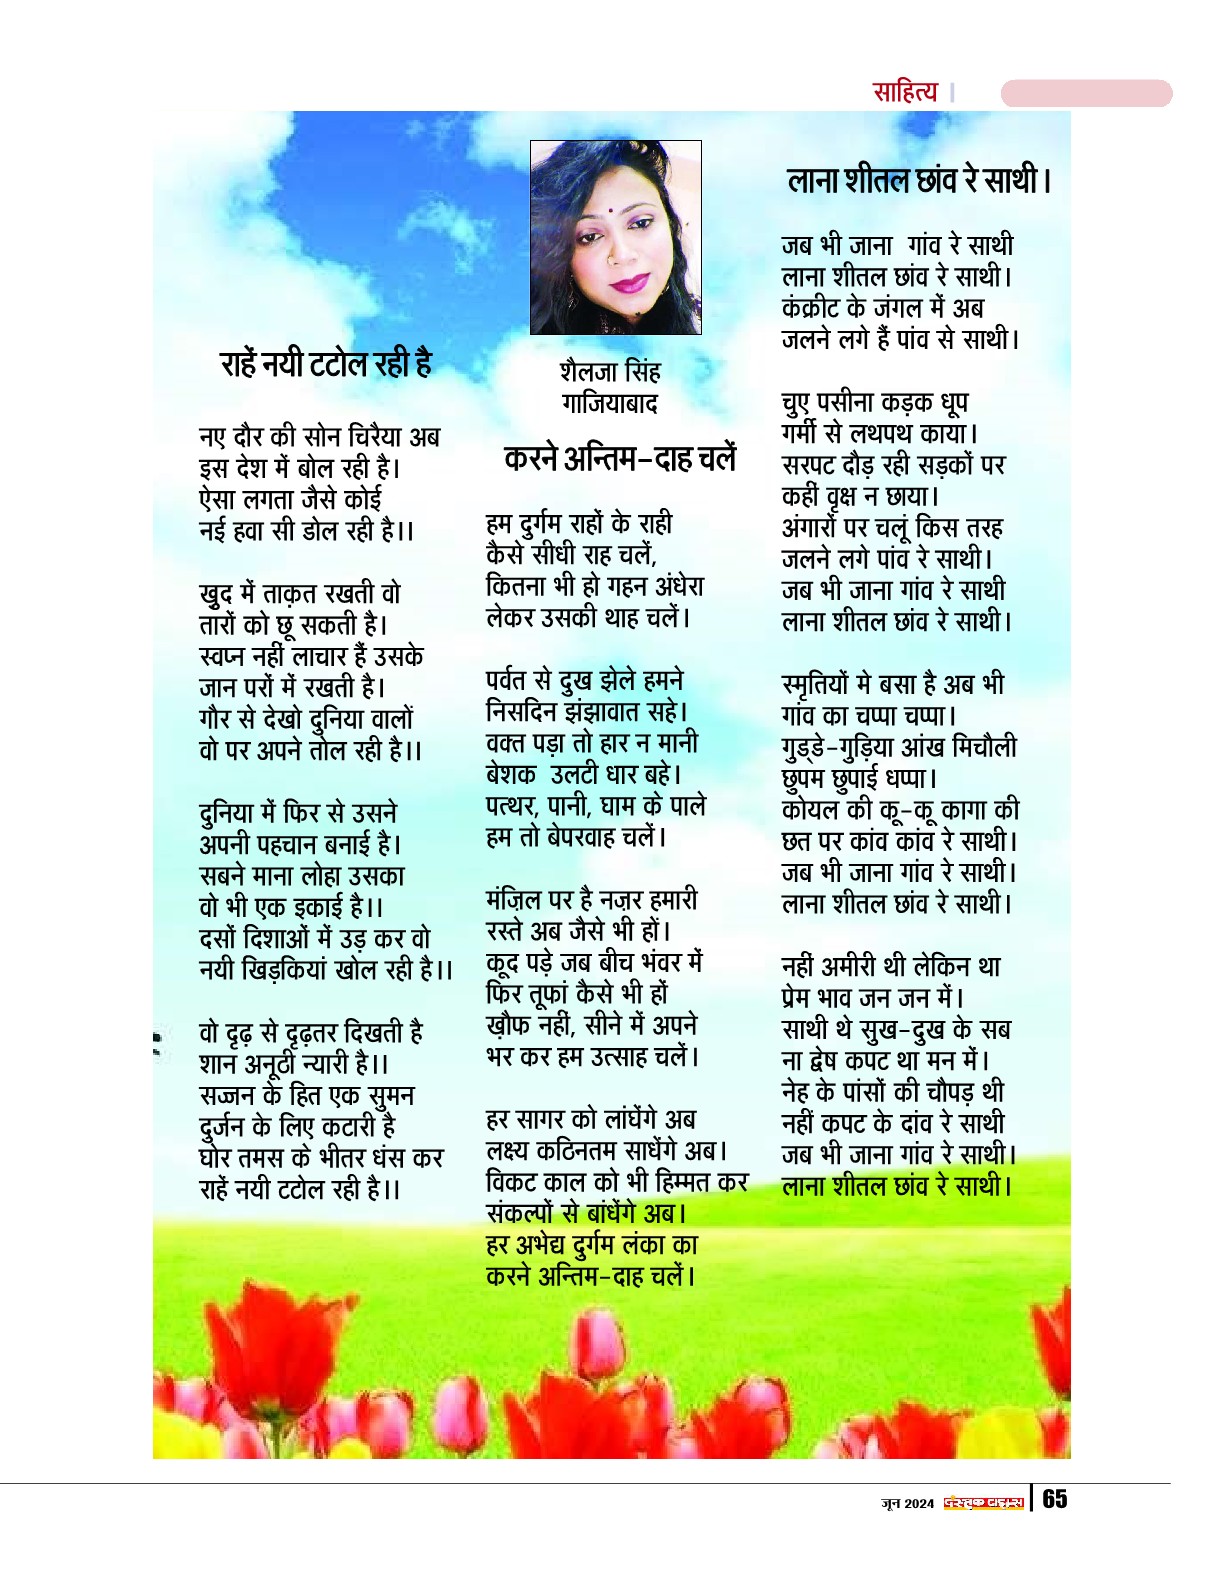 साहित्य
राहें नयी टटोल रही है
नए दौर की सोन चिरैया अब
इस देश में बोल रही है।
ऐसा लगता जैसे कोई
नई हवा सी डोल रही है।।
खुद में ताक़त रखती वो
तारों को छू सकती है।
स्वप्न नहीं लाचार हैं उसके
जान परों में रखती है।
गौर से देखो दुनिया वालों
वो पर अपने तोल रही है।।
दुनिया में फिर से उसने
अपनी पहचान बनाई है।
सबने माना लोहा उसका
वो भी एक इकाई है।।
दसों दिशाओं में उड़ कर वो
नयी खिड़कियां खोल रही है।।
वो दृढ़ से दृढ़तर दिखती है
शान अनूठी न्यारी है।।
सज्जन के हित एक सुमन
दुर्जन के लिए कटारी है
घोर तमस के भीतर धंस कर
राहें नयी टटोल रही है।।
शैलजा सिंह
गाजियाबाद
करने अन्तिम-दाह चलें
हम दुर्गम राहों के राही
कैसे सीधी राह चलें,
कितना भी हो गहन अंधेरा
लेकर उसकी थाह चलें।
पर्वत से दुख झेले हमने
निसदिन झंझावात सहे।
वक्त पड़ा तो हार न मानी
बेशक उलटी धार बहे।
पत्थर, पानी, घाम के पाले
हम तो बेपरवाह चलें।
मंज़िल पर है नज़र हमारी
रस्ते अब जैसे भी हों।
कूद पड़े जब बीच भंवर में
फिर तूफां कैसे भी हों
ख़ौफ नहीं, सीने में अपने
भर कर हम उत्साह चलें।
हर सागर को लांघेंगे अब
लक्ष्य कठिनतम साधेंगे अब।
विकट काल को भी हिम्मत कर
संकल्पों से बांधेंगे अब।
हर अभेद्य दुर्गम लंका का
करने अन्तिम-दाह चलें।
लाना शीतल छांव रे साथी।
जब भी जाना गांव रे साथी
लाना शीतल छांव रे साथी।
कंक्रीट के जंगल में अब
जलने लगे हैं पांव से साथी।
चुए पसीना कड़क धूप
गर्मी से लथपथ काया।
सरपट दौड़ रही सड़कों पर
कहीं वृक्ष न छाया।
अंगारों पर चलूं किस तरह
जलने लगे पांव रे साथी।
जब भी जाना गांव रे साथी
लाना शीतल छांव रे साथी।
स्मृतियों मे बसा है अब भी
गांव का चप्पा चप्पा।
गुड्डे-गुड़िया आंख मिचौली
छुपम छुपाई धप्पा।
कोयल की कू-कू कागा की
छत पर कांव कांव रे साथी।
जब भी जाना गांव रे साथी।
लाना शीतल छांव रे साथी।
नहीं अमीरी थी लेकिन था
प्रेम भाव जन जन में।
साथी थे सुख-दुख के सब
ना द्वेष कपट था मन में।
नेह के पांसों की चौपड़ थी
नहीं कपट के दांव रे साथी
जब भी जाना गांव रे साथी।
लाना शीतल छांव रे साथी।
जून 2024 दस्तक टाइम्स 65